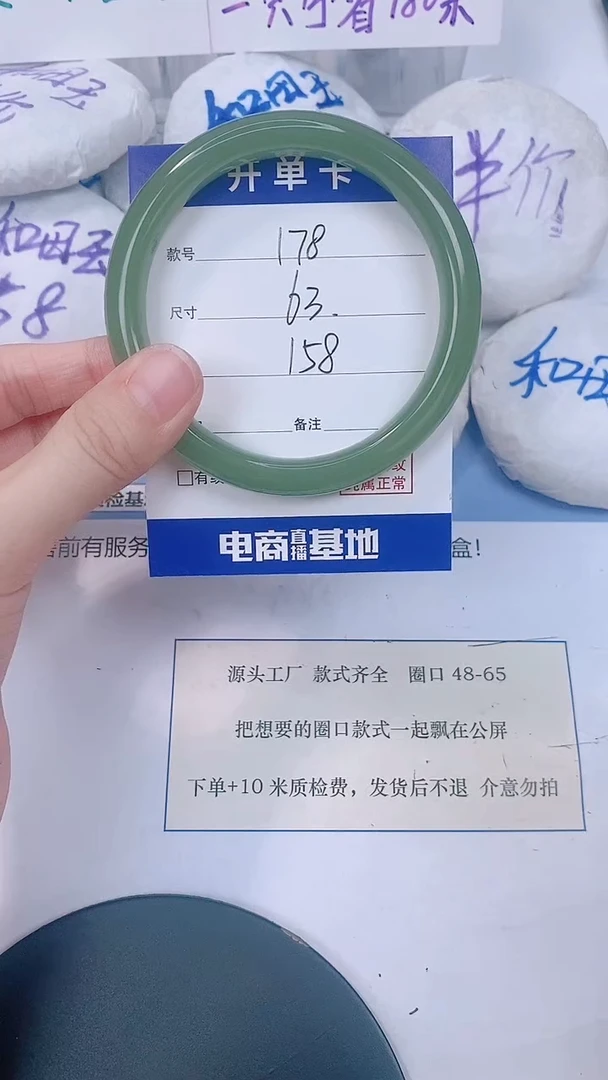 一只可省180米
和田玉
和田玉
半价
58
和田
开单卡
款号 178
尺寸 63.
158
备注
□有纹
纹属正常
检基
电商直播基地
售前有服务
盒!
源头工厂 款式齐全 圈口 48-65
把想要的圈口款式一起飘在公屏
下单+10 米质检费，发货后不退 介意勿拍